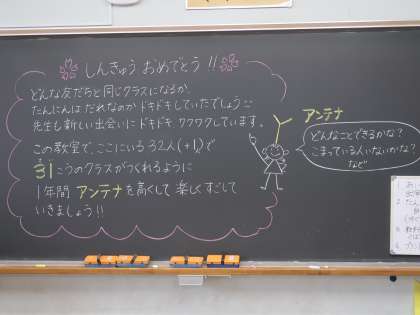 しんきゅう おめでとう!!
どんな友だちと同じクラスになるか、
たんにんは だれなのか ドキドキしていたでしょう
先生も新しい出会いに ドキドキ、ワクワクしています。
この教室で、ここにいる32人(+1人)で
31こうのクラスがつくれるように
1年間 アンテナを高くして 楽しくすごして
いきましょう!!
アンテナ
どんなことできるかな?
こまっている人いないかな?
など